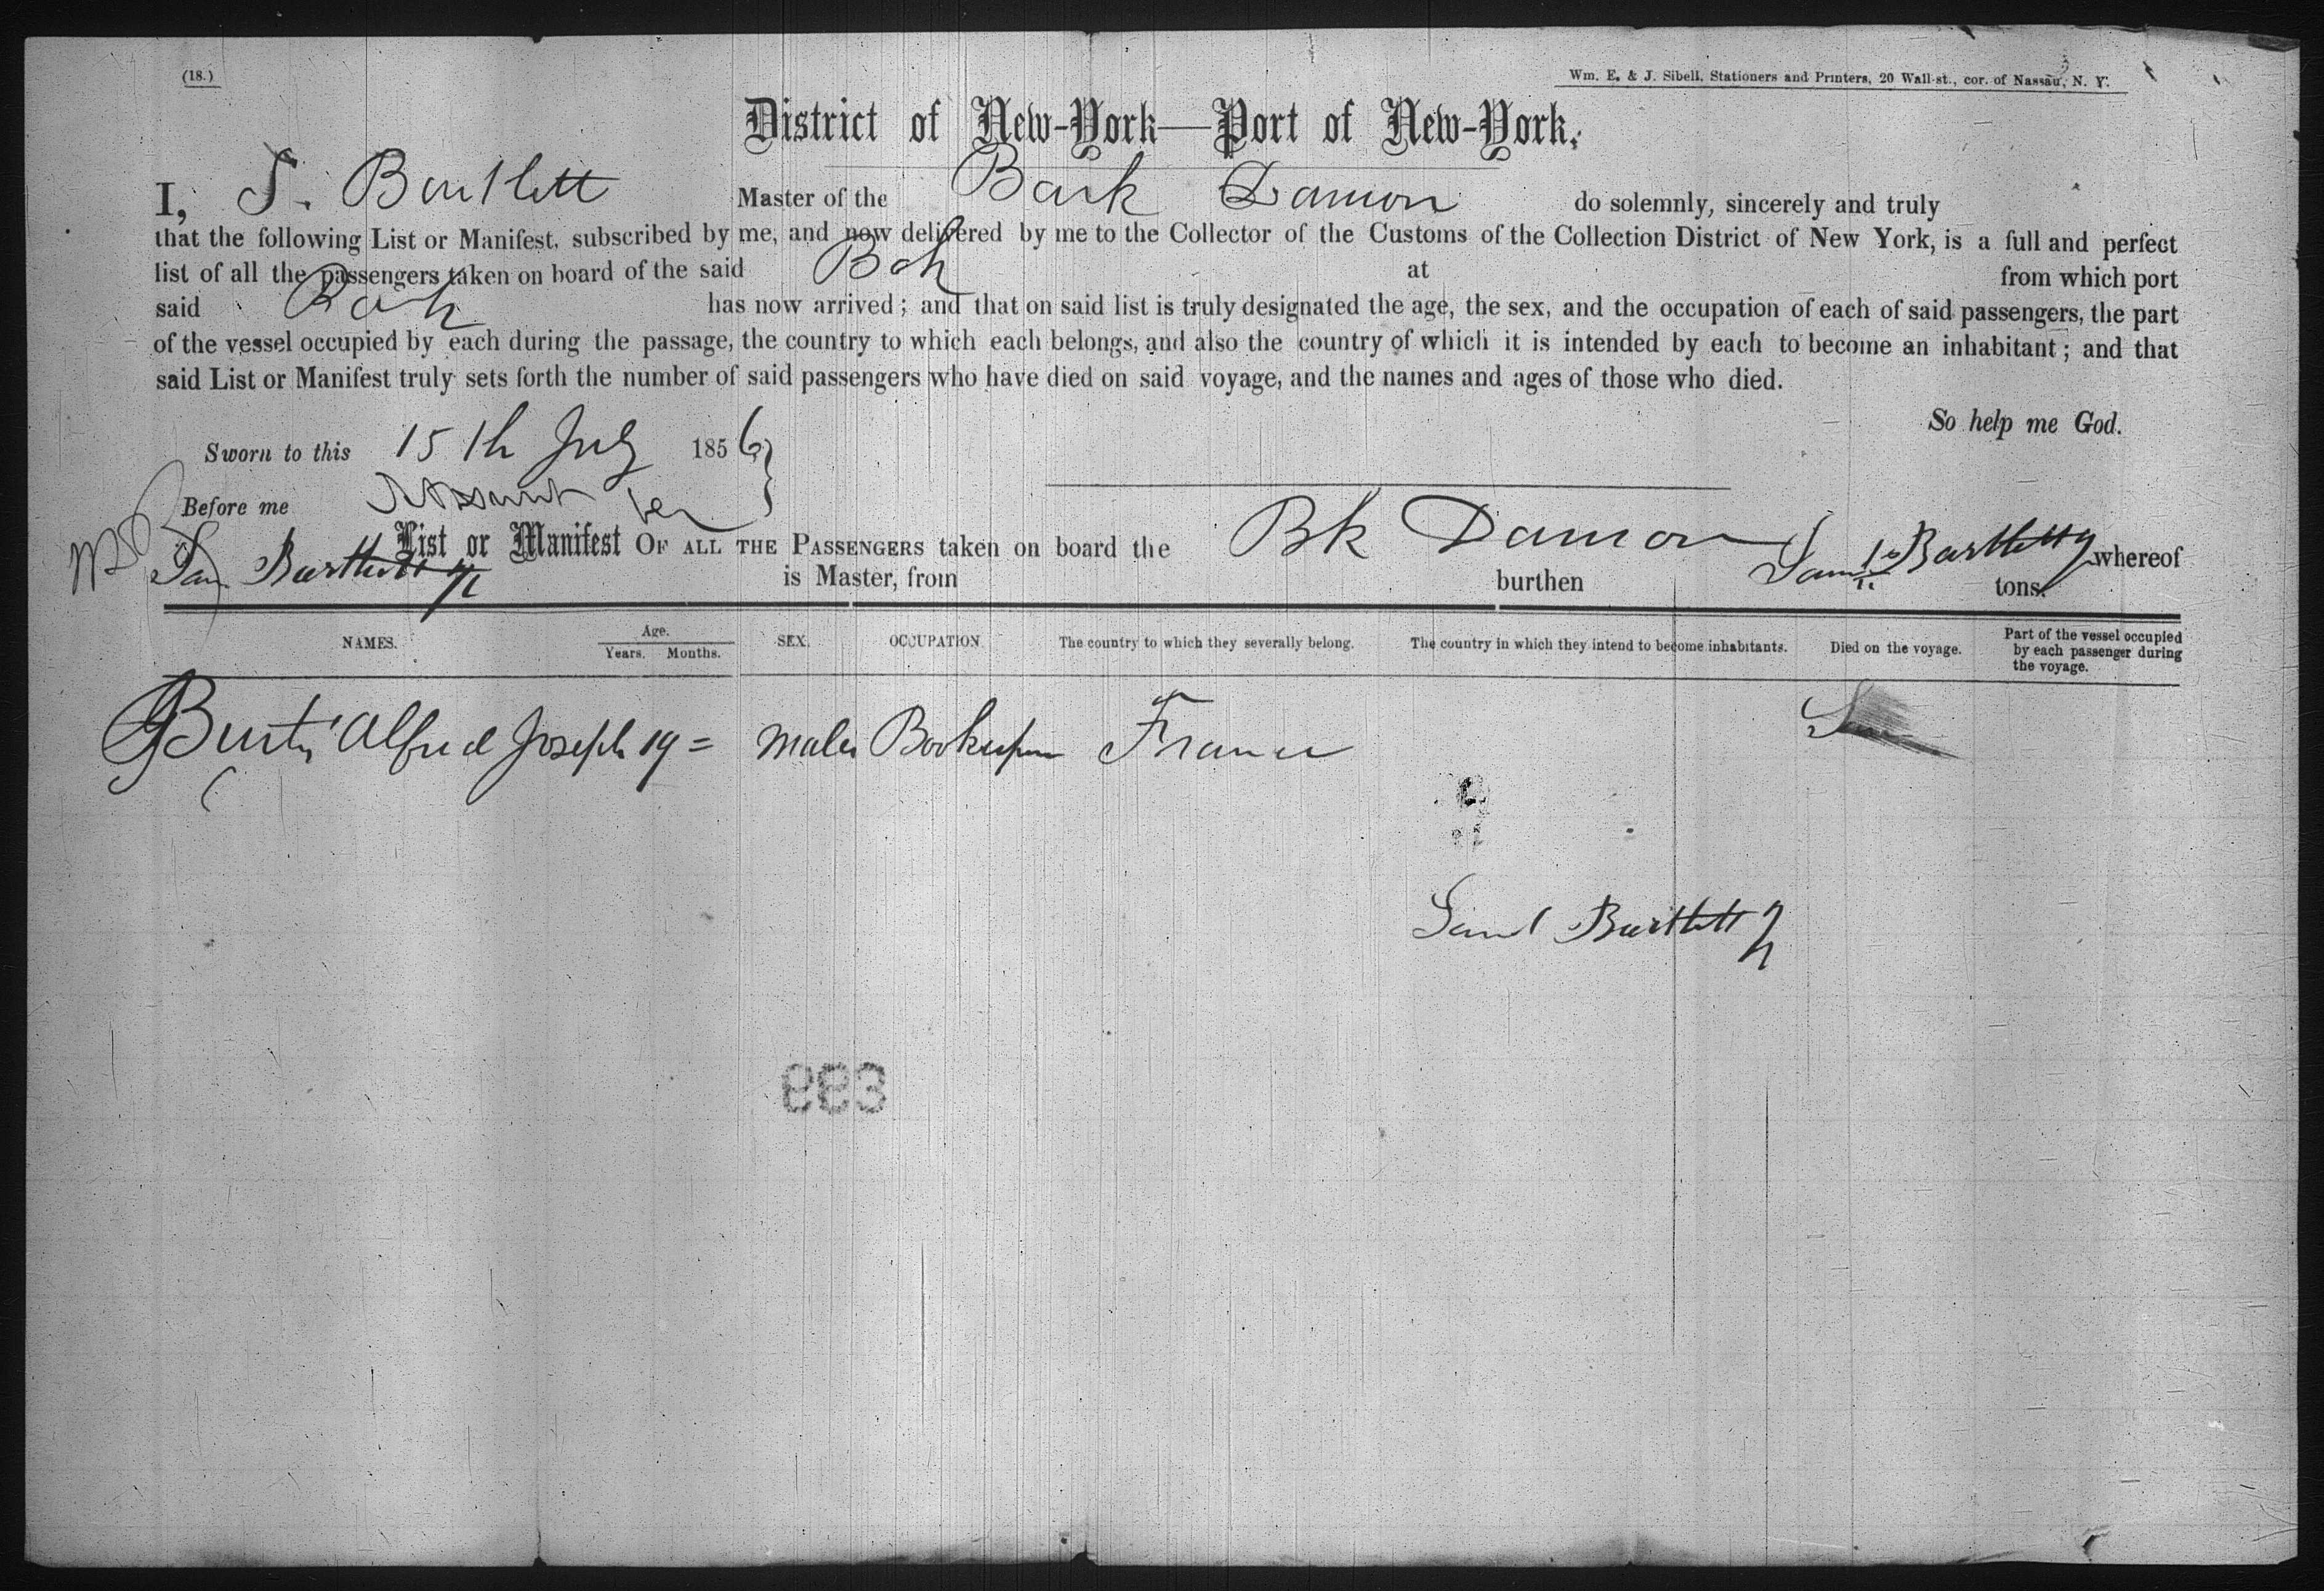 (18.)
Wm. E. & J. Sibell, Stationers and Printers, 20 Wall-st., cor. of Nassau, N. Y.
District of New-York—Port of New-York.
I, S. Bartlett Master of the Bark Damon do solemnly, sincerely and truly
that the following List or Manifest, subscribed by me, and now delivered by me to the Collector of the Customs of the Collection District of New York, is a full and perfect
list of all the passengers taken on board of the said Bark at from which port
said Bark has now arrived; and that on said list is truly designated the age, the sex, and the occupation of each of said passengers, the part
of the vessel occupied by each during the passage, the country to which each belongs, and also the country of which it is intended by each to become an inhabitant; and that
said List or Manifest truly sets forth the number of said passengers who have died on said voyage, and the names and ages of those who died.
So help me God.
Sworn to this 15th July 1856
Before me
List or Manifest OF ALL THE PASSENGERS taken on board the Bk Damon Saml Bartlett whereof
Sam Bartlett is Master, from burthen tons.
NAMES. Age. Years. Months. SEX. OCCUPATION. The country to which they severally belong. The country in which they intend to become inhabitants. Died on the voyage. Part of the vessel occupied by each passenger during the voyage.
Alfred Joseph 19 = male Bookkeeper France
Saml Bartlett